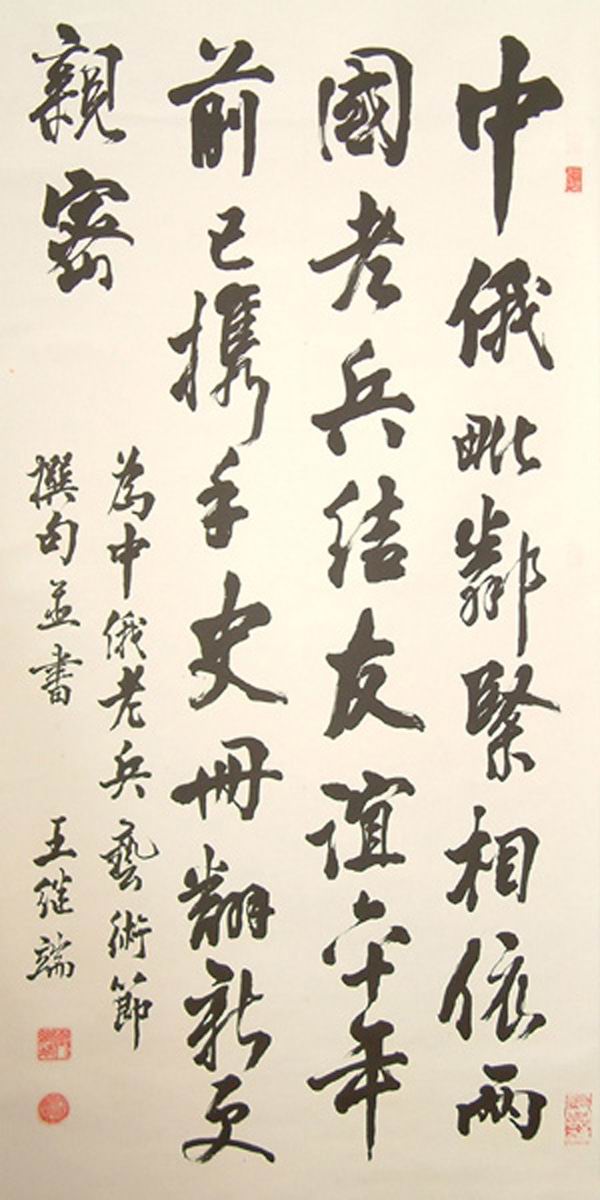 中俄毗鄰緊相依兩
國老兵結友誼六十年
前已携手史冊翻新更
親密
為中俄老兵藝術節
撰句並書 王继端